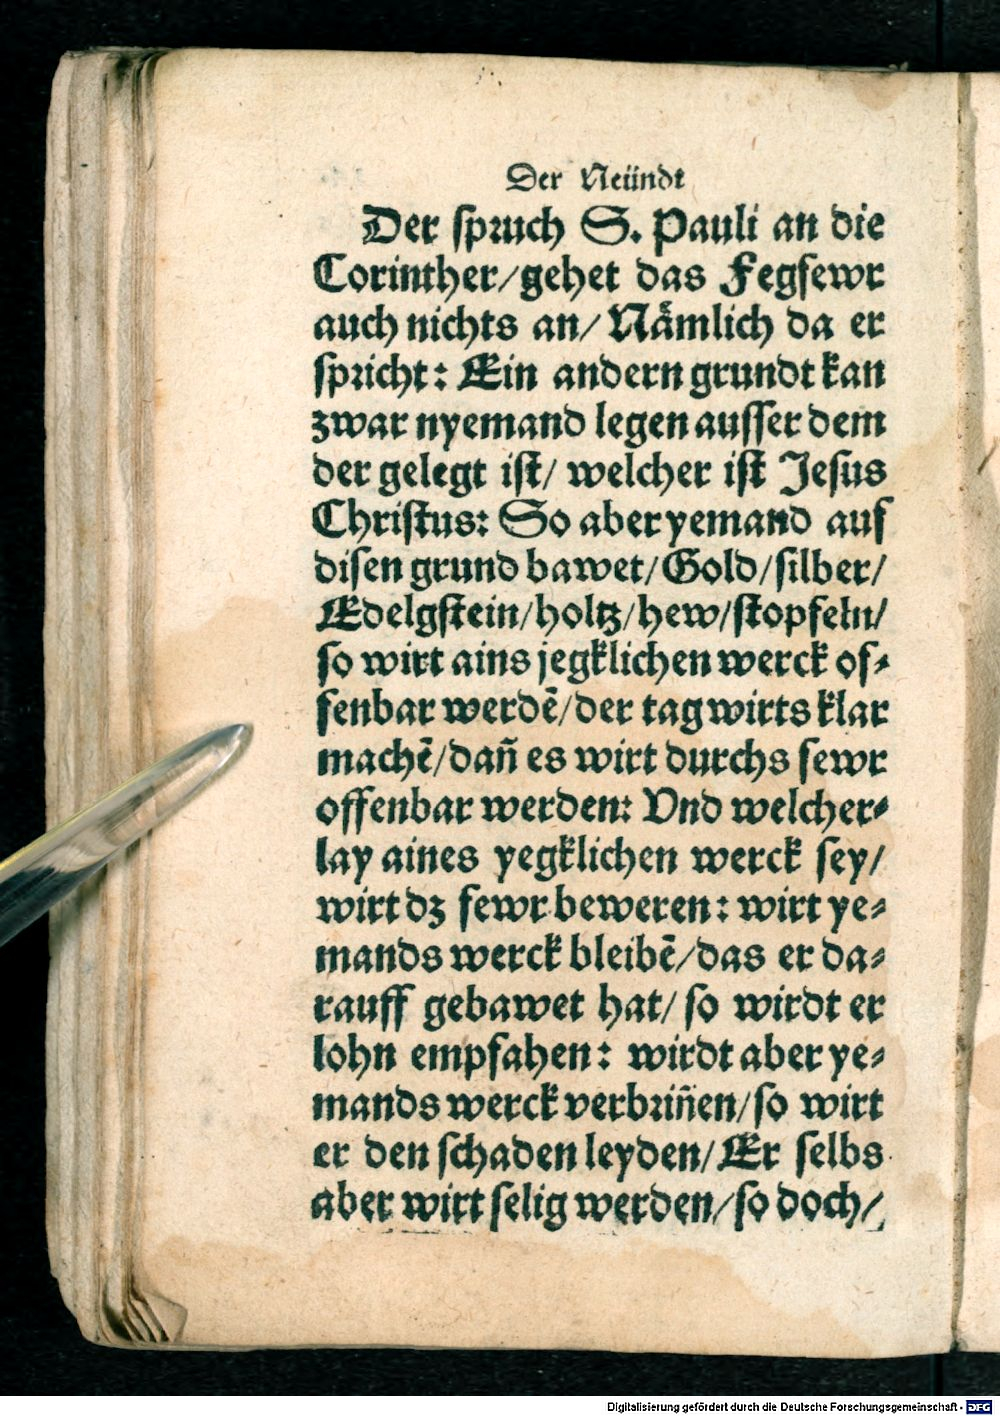 Der Neündt
Der spruch S. Pauli an die
Corinther/gehet das Fegfewr
auch nichts an/ Nämlich da er
spricht: Ein andern grundt kan
zwar nyemand legen ausser dem
der gelegt ist/ welcher ist Jesus
Christus: So aber yemand auf
disen grund bawet/Gold/silber/
Edelgstein/holtz/hew/stopfeln/
so wirt ains jegklichen werck of⸗
fenbar werdē/der tag wirts klar
machē/dañ es wirt durchs fewr
offenbar werden: Vnd welcher⸗
lay aines yegklichen werck sey/
wirt dz fewr beweren: wirt ye⸗
mands werck bleibē/das er da⸗
rauff gebawet hat/ so wirdt er
lohn empfahen: wirdt aber ye⸗
mands werck verbriñen/so wirt
er den schaden leyden/ Er selbs
aber wirt selig werden/so doch/
Digitalisierung gefördert durch die Deutsche Forschungsgemeinschaft - DFG